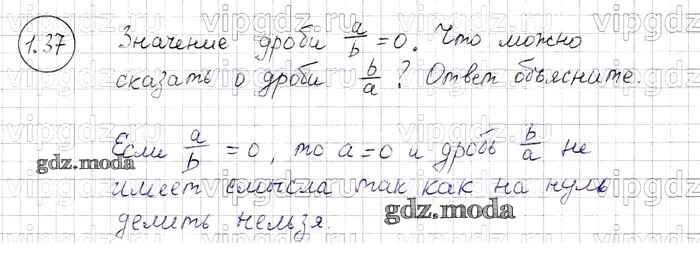 1.37 Значение дроби a/b = 0. Что можно
сказать о дроби b/a? Ответ объясните.
Если a/b = 0, то a = 0 и дробь b/a не
gdz.moda
имеет смысла так как на нуль
делить нельзя.
gdz.moda